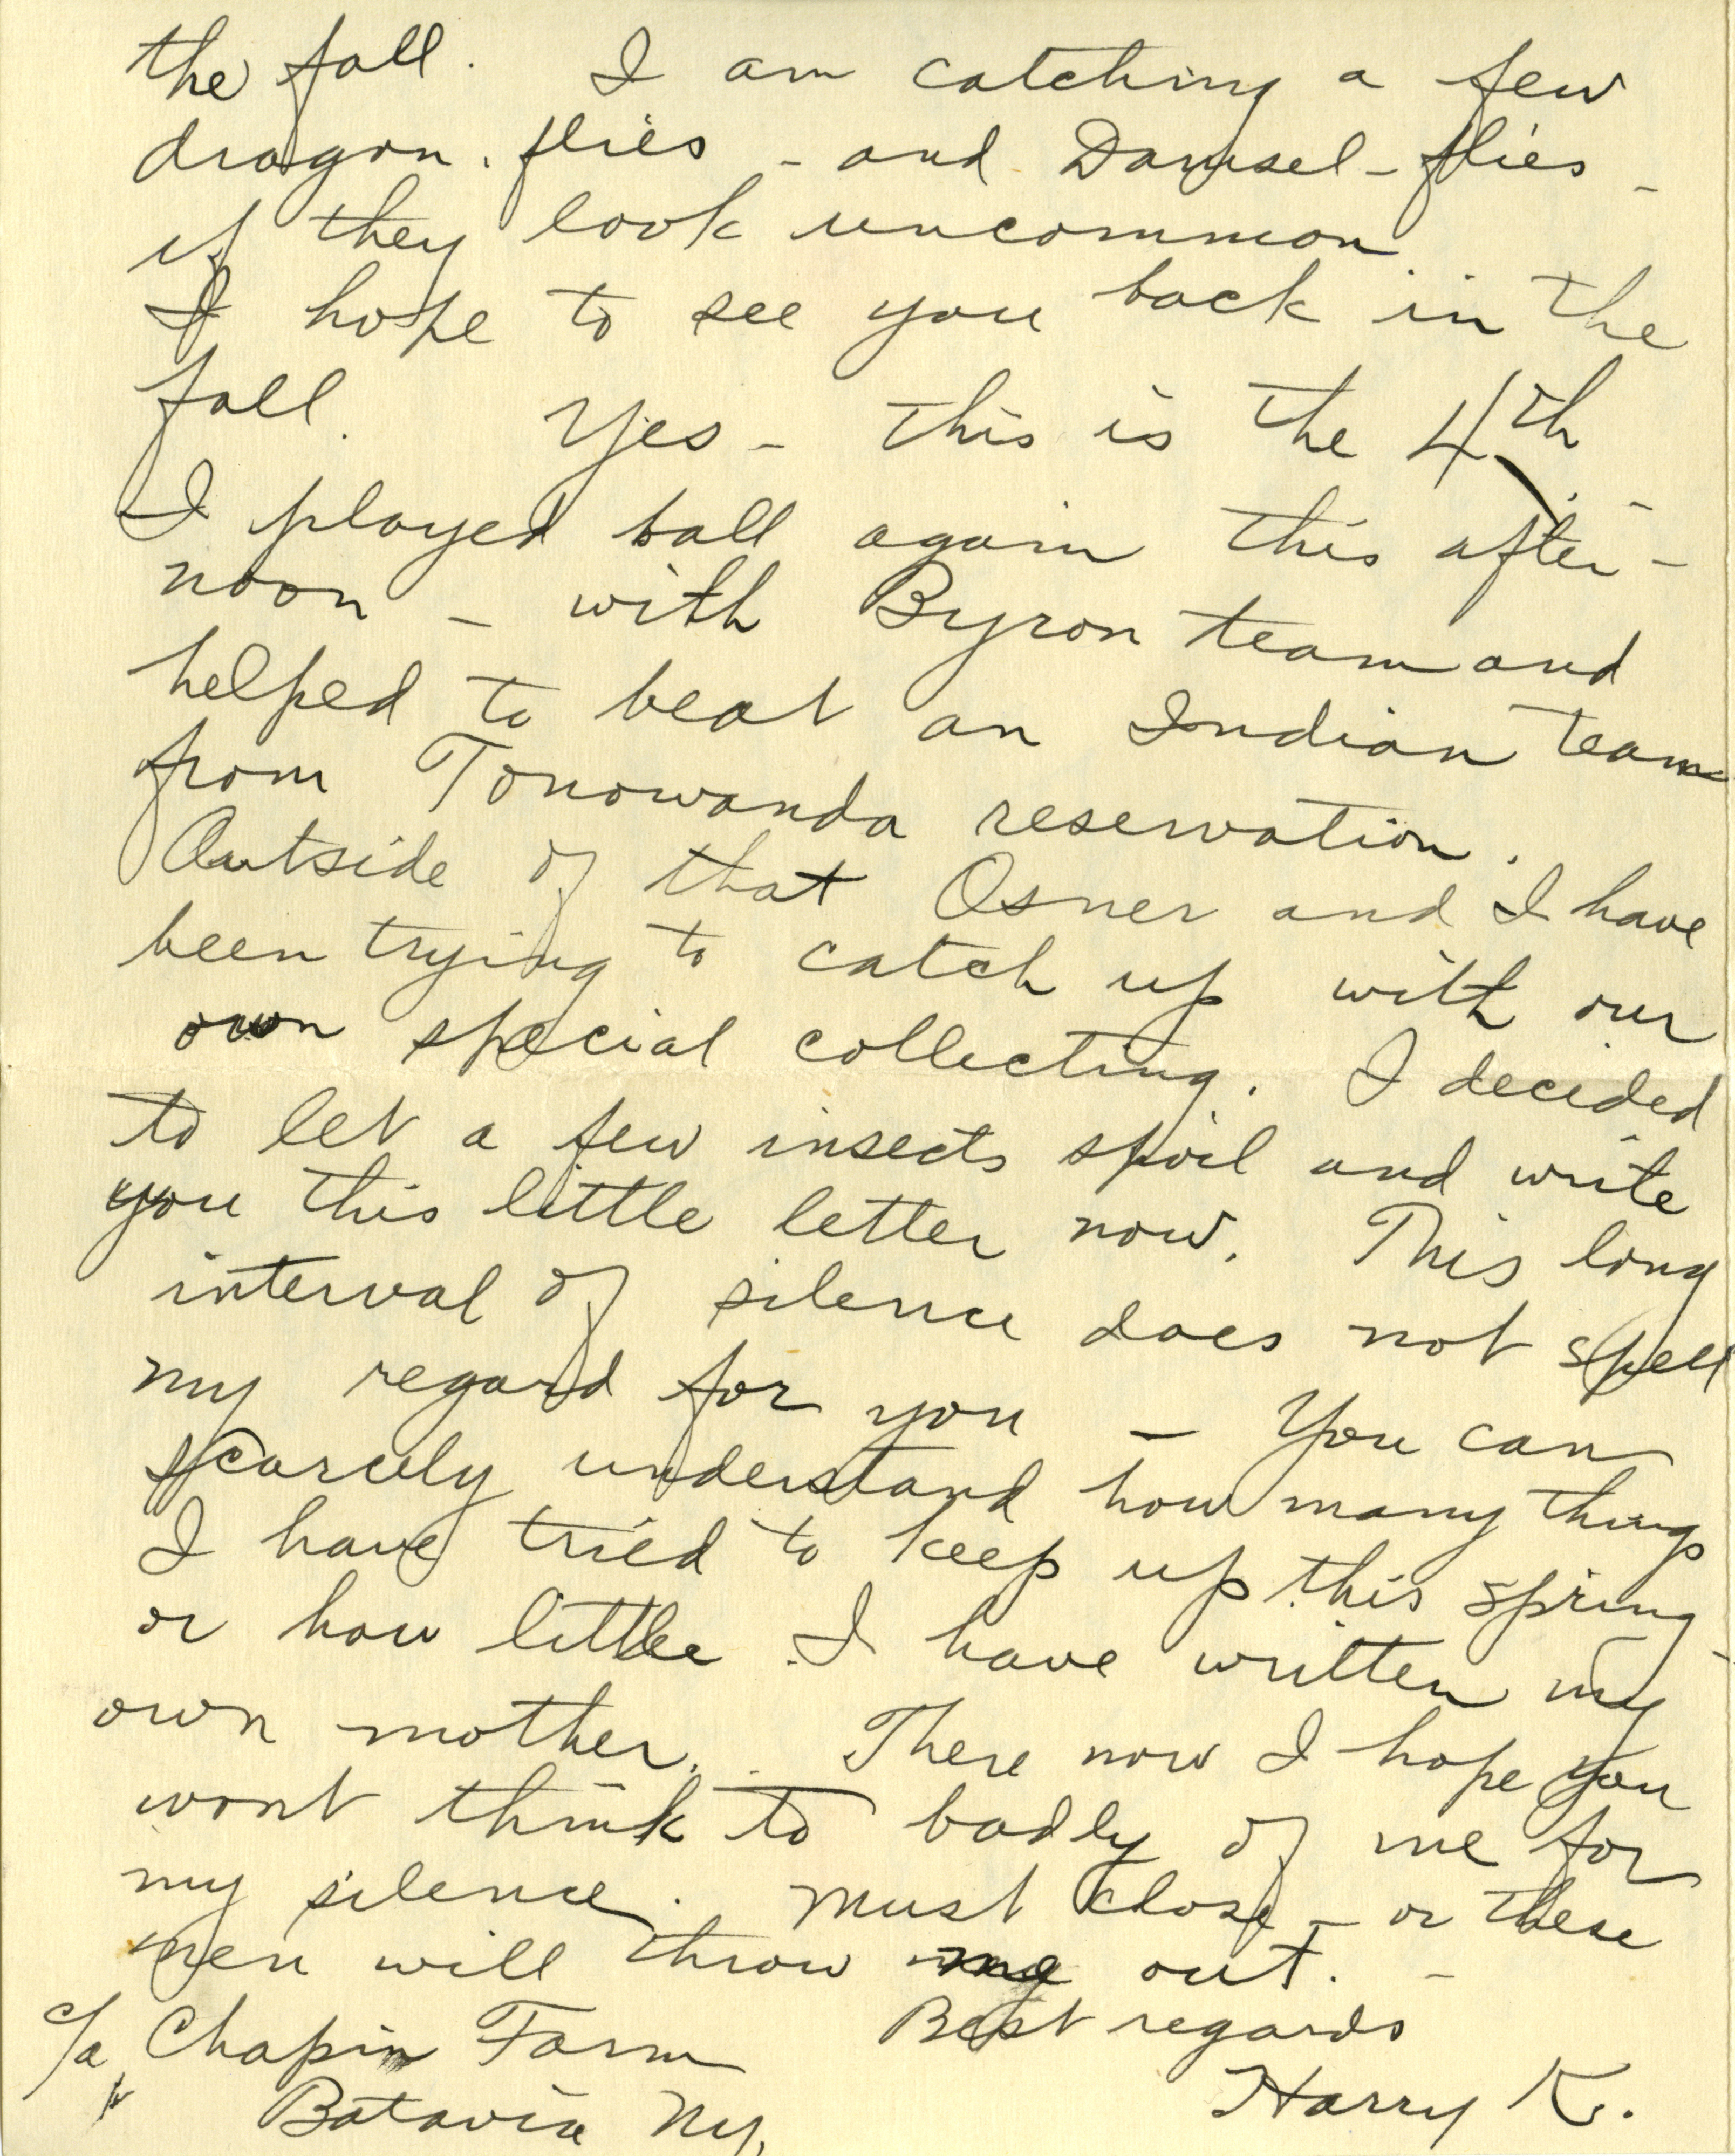 the fall. I am catching a few
dragon-flies - and Damsel-flies -
if they look uncommon.
I hope to see you back in the
fall. Yes - this is the 4th -
I played ball again this after-
noon - with Byron team and
helped to beat an Indian team
from Tonowanda reservation.
Outside of that Osner and I have
been trying to catch up with our
own special collecting. I decided
to let a few insects spoil and write
you this little letter now. This long
interval of silence does not spell
my regard for you - You can
scarcely understand how many things
I have tried to keep up this spring -
or how little I have written my
own mother. There now I hope you
wont think to badly of me for
my silence. Must close - or these
men will throw me out. -
Best regards
Harry K.
c/o Chapin Farm
Batavia Ny.